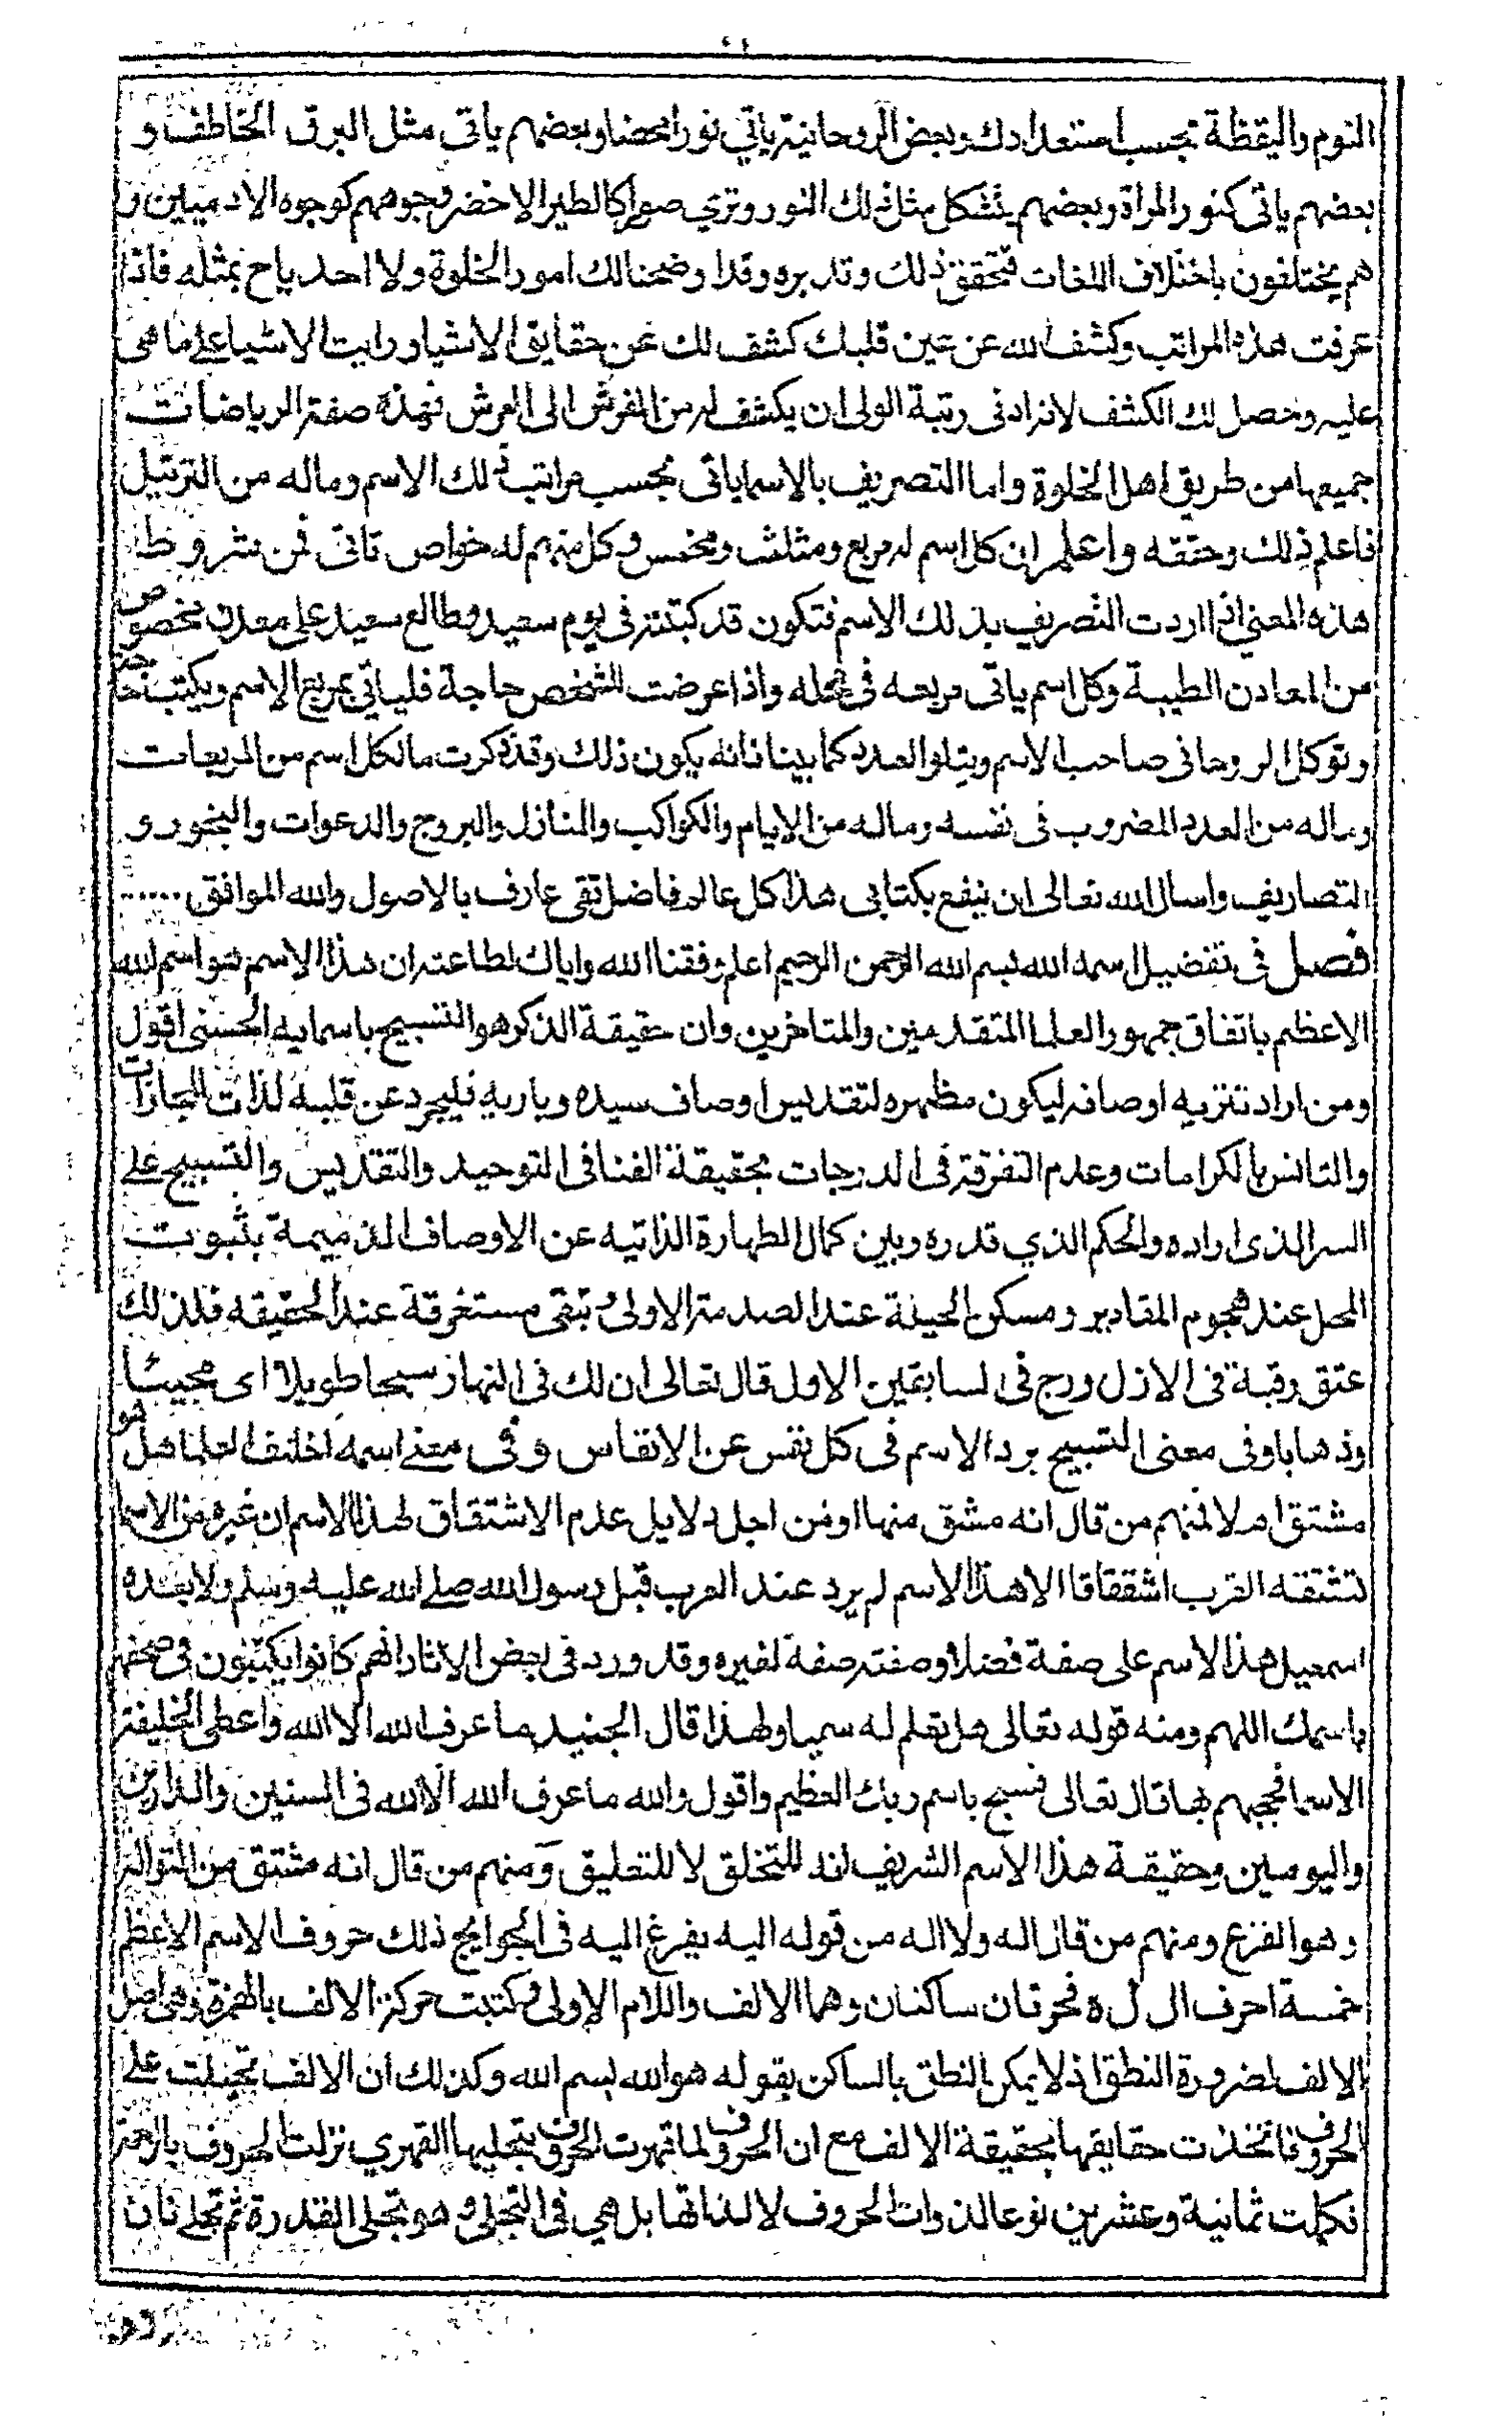 النوم واليقظة بحسب استعدادك وبعض الروحانية ياتي نورا محضا وبعضهم ياتى مثل البرق الخاطف و
بعضهم ياتى كنور المراة وبعضهم يتشكل مثل ذلك النور وترى صورا كالطير الاخضر وجوههم كوجوه الادميين و
هم يختلفون باختلاف اللغات فتحقق ذلك وتدبره وقد اوضحنا لك امور الخلوة ولا احد باح بمثله فاذا
عرفت هذه المراتب وكشف الله عن عين قلبك كشف لك عن حقايق الاشيا ورايت الاشيا على ما هى
عليه وحصل لك الكشف لانه ادنى رتبة الولى ان يكشف له من الفرش الى العرش فهذه صفة الرياضات
جميعها من طريق اهل الخلوة واما التصريف بالاسما ياتى بحسب مراتب ذلك الاسم وماله من الترتيل
فاعلم ذلك وحققه واعلم ان كل اسم له مربع ومثلث ومخمس وكل منهم له خواص تاتى فمن شروط
هذه المعنى اذا اردت التصريف بذلك الاسم فتكون قد كتبته فى يوم سعيد وطالع سعيد على معدن مخصوص
من المعادن الطيبة وكل اسم ياتى مربعه فى محله واذا عرضت للشخص حاجة فلياتي بمربع الاسم ويكتب حاجته
وتوكل الروحانى صاحب الاسم ويتلو العدد كما بينا فانه يكون ذلك وقد ذكرت ما لكل اسم من المربعات
وماله من العدد المضروب فى نفسه وماله من الايام والكواكب والمنازل والبروج والدعوات والبخور و
التصاريف واسال الله تعالى ان ينفع بكتابى هذا كل عالم فاضل تقى عارف بالاصول والله الموافق .....
فصل فى تفضيل اسمه الله بسم الله الرحمن الرحيم اعلم وفقنا الله واياك لطاعته ان هذا الاسم هو اسم الله
الاعظم باتفاق جمهور العلما المتقدمين والمتاخرين وان حقيقة الذكر هو التسبيح باسمايه الحسنى اقول
ومن اراد تنزيه اوصافه ليكون مظهره لتقديس اوصاف سيده وباريه فليجرد عن قلبه لذات المجازات
والتانس بالكرامات وعدم التفرقة فى الدرجات بحقيقة الفنا فى التوحيد والتقديس والتسبيح على
السر الذى اراده والحكم الذي قدره وبين كمال الطهارة الذاتيه عن الاوصاف الذميمة بثبوت
المحل عند هجوم المقادير ومسكن الحينة عند الصدمة الاولى وتبقى مستغرقة عند الحقيقه فلذلك
عتق رقبة فى الازل ورج فى لسابقين الاول قال تعالى ان لك فى النهار سبحا طويلا اى مجيئا
وذهابا وفى معنى التسبيح برد الاسم فى كل نفس عن الانفاس وفى معنى اسمه اختلف العلما هل هو
مشتق ام لا فمنهم من قال انه مشتق منها اومن اجل دلايل عدم الاشتقاق لهذا الاسم ان غيره من الاسما
تشتقه العرب اشتقاقا الا هذا الاسم لم يرد عند العرب قبل رسول الله صلى الله عليه وسلم ولا بعده
اسمعيل هذا الاسم على صفة فضلا وصفته صفة لغيره وقد ورد فى بعض الاثار انهم كانوا يكتبون فى صحفهم
باسمك اللهم ومنه قوله تعالى هل تعلم له سميا ولهذا قال الجنيد ما عرف الله الا الله واعطى الخليفة
الاسما فحجبهم بها قال تعالى فسبح باسم ربك العظيم واقول والله ما عرف الله الا الله فى السنين والدارين
واليومين وحقيقة هذا الاسم الشريف انه للتخلق لا للتعليق ومنهم من قال انه مشتق من التواله
وهو الفزع ومنهم من قال اله ولا اله من قوله اليه يفرغ اليه فى الحوايج ذلك حروف الاسم الاعظم
خمسة احرف ال ل ه فحرفان ساكنان وهما الالف واللام الاولى وكتبت حركة الالف بالهمزة وهى اصل
الالف لضرورة النطق اذ لا يمكن النطق بالساكن بقوله هو الله بسم الله وكذلك ان الالف تجلت على
الحروف فاتخذت حقايقها بحقيقة الالف مع ان الحروف لما قهرت الحروف بتجليها القهري نزلت الحروف بالرحمة
فكملت ثمانية وعشرين نوعا لذوات الحروف لا لذاتها بل هي فى التجلى وهو تجلى القدرة ثم تجلى ثان